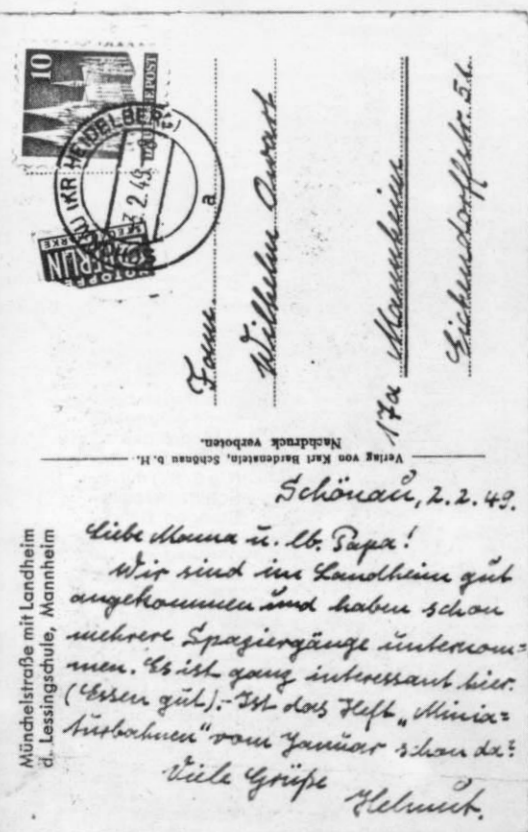 10
EPOST
(U (KR HEIDELBERG)
3.2.49.
a
BERLIN
Fam.
Wilhelm Awart
17a Mannheim
Eichendorffstr. 56.
Verlag von Karl Bardenstein, Schönau b. H.
Nachdruck verboten.
Münchelstraße mit Landheim
d. Lessingschule, Mannheim
Schönau, 2.2.49.
Liebe Mama u. lb. Papa!
Wir sind im Landheim gut
angekommen und haben schon
mehrere Spaziergänge unternom=
men. Es ist ganz interessant hier.
(Essen gut).- Ist das Heft „Minia=
turbahnen" vom Januar schon da?
Viele Grüße
Helmut.